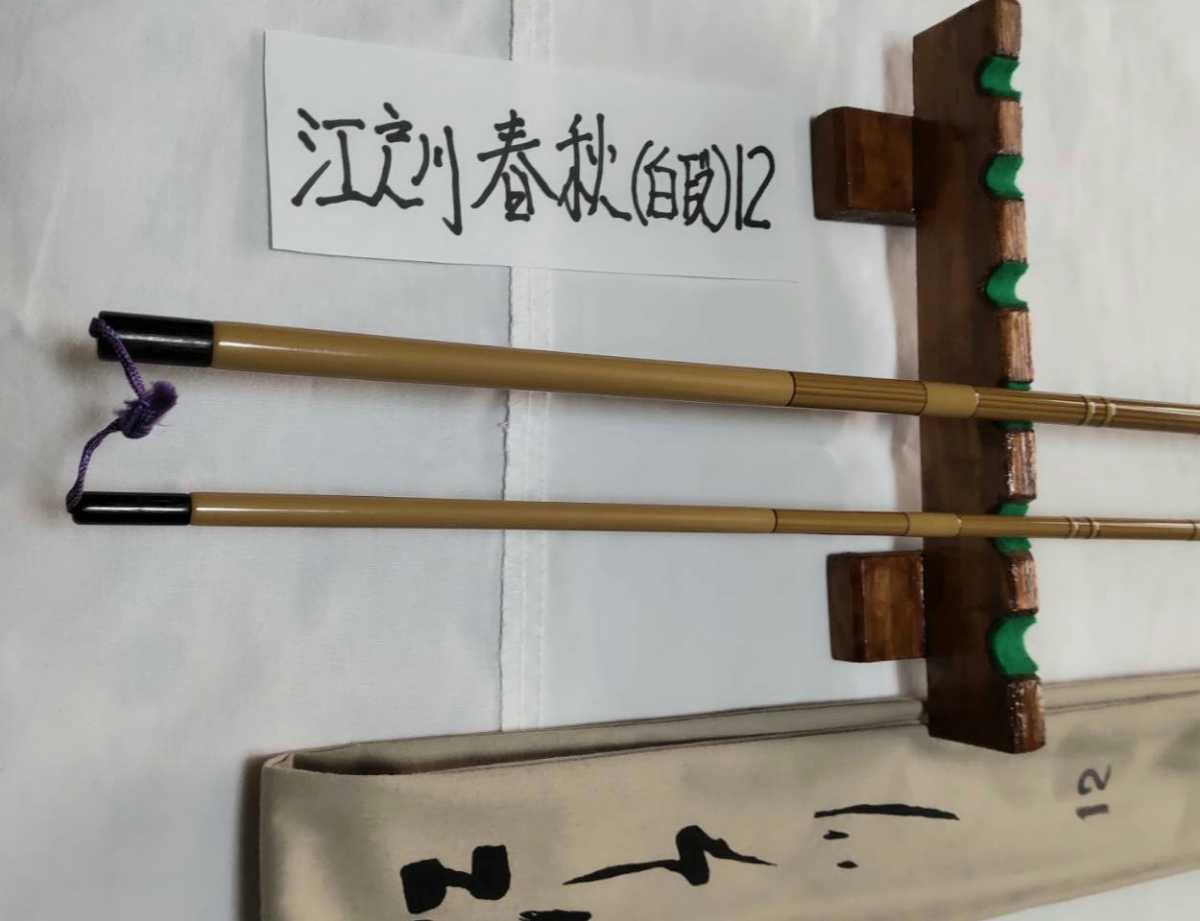 江戸川春秋(白段)12
12